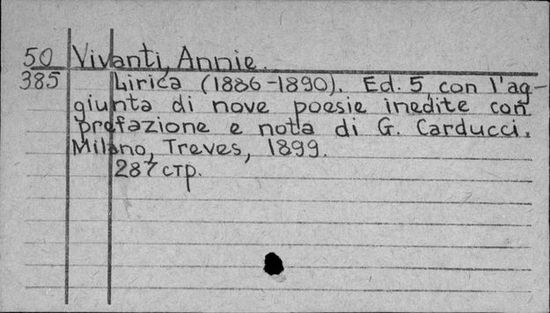 50 Vivanti, Annie.
385 Lirica (1886-1890). Ed. 5, con l'ag-
giunta di nove poesie inedite con
prefazione e nota di G. Carducci.
Milano, Treves, 1899.
287 стр.